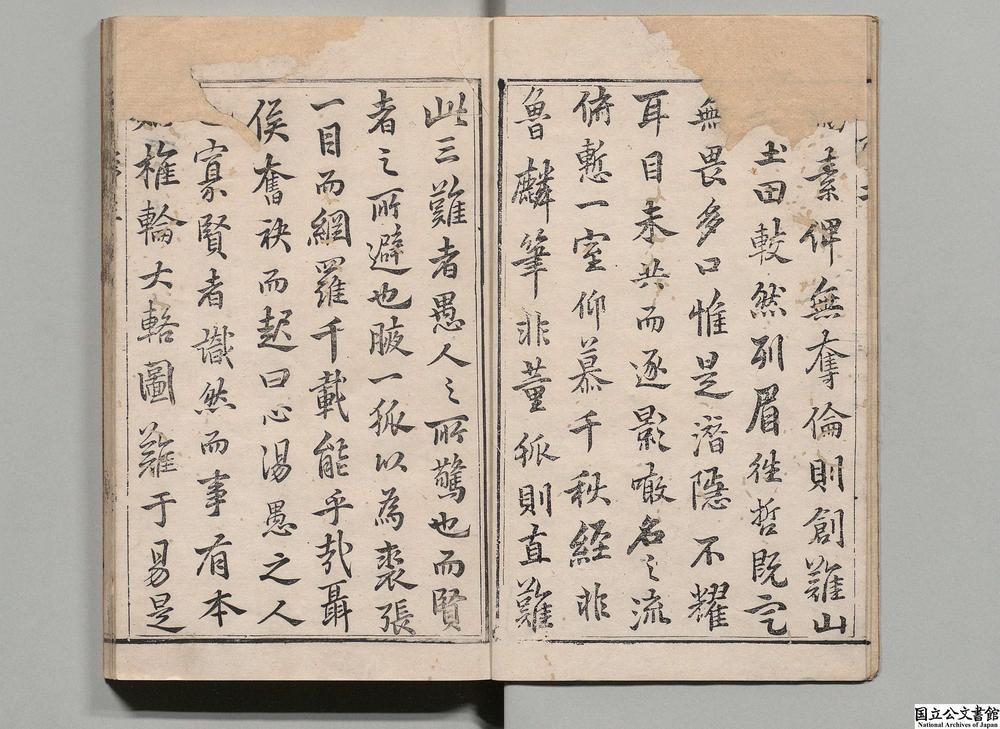 素俾無奪倫則創難山
土田較然列眉往哲既定
無畏多口惟是潛隱不耀
耳目未共而逐影噉名之流
俯慙一室仰慕千秋經非
魯麟筆非董狐則直難
此三難者愚人之所驚也而賢
者之所避也腋一狐以為裘張
一目而網羅千載能乎哉聶
侯奮袂而起曰心湯愚之人
寡賢者識然而事有本
椎輪大輅圖難于易是
国立公文書館
National Archives of Japan